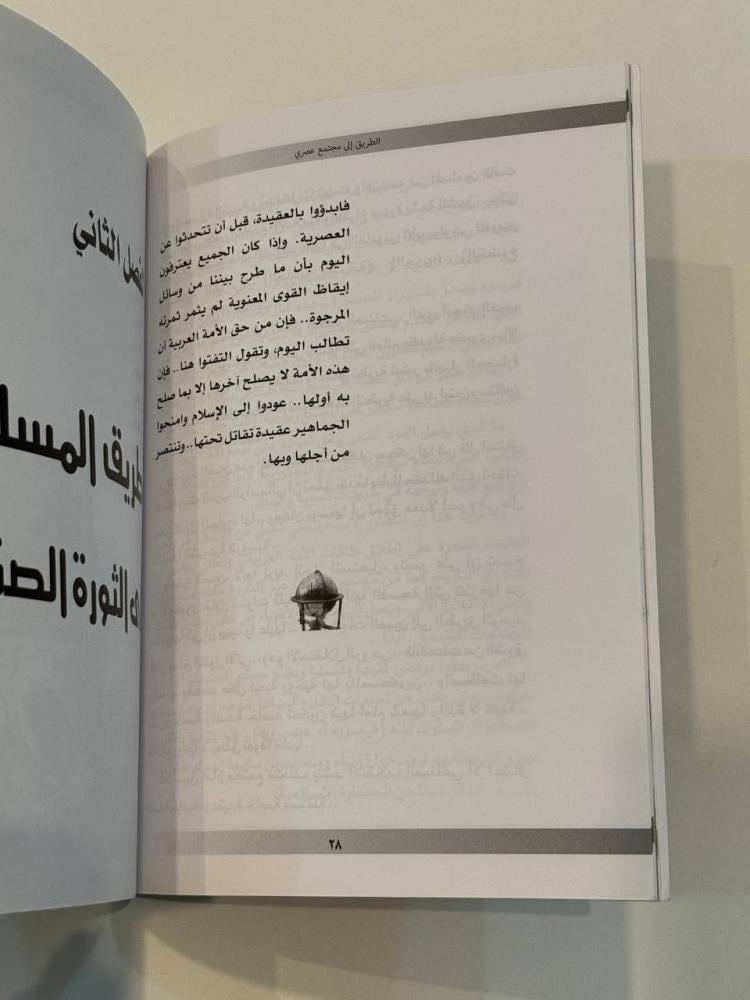 الطريق إلى مجتمع عصري
فابدؤوا بالعقيدة، قبل أن تتحدثوا عن
العصرية. وإذا كان الجميع يعترفون
اليوم بأن ما طرح بيننا من وسائل
إيقاظ القوى المعنوية لم يثمر ثمرته
المرجوة.. فإن من حق الأمة العربية أن
تطالب اليوم، وتقول التفتوا هنا.. فإن
هذه الأمة لا يصلح آخرها إلا بما صلح
به أولها.. عودوا إلى الإسلام وامنحوا
الجماهير عقيدة تقاتل تحتها.. وتنتصر
من أجلها وبها.
٢٨
الثاني
الثورة